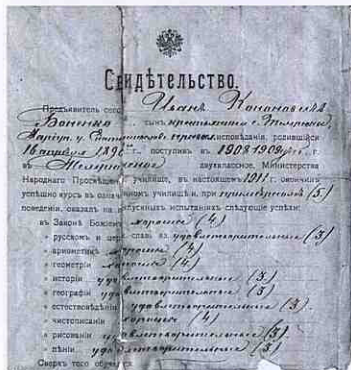 Свидѣтельство.
Предъявитель сего Иванъ Кононовичъ
Боненко сынъ крестьянина с.
уѣзда исповѣданія, родившійся
16 1896 г. поступивъ въ 1908/1909 г.
въ двухклассное, Министерства
Народнаго Просвѣщенія училище, въ настоящемъ 1911 г. окончилъ
успѣшно курсъ въ означенномъ училищѣ и, при примѣрномъ (5)
поведеніи, оказалъ на выпускныхъ испытаніяхъ слѣдующіе успѣхи:
въ Законѣ Божіемъ хорошіе (4)
» русскомъ и церк. слав. яз. удовлетворительные (3)
» ариѳметикѣ хорошіе (4)
» геометріи хорошіе (4)
» исторіи удовлетворительные (3)
» географіи удовлетворительные (3)
» естествовѣдѣніи удовлетворительные (3)
» чистописаніи хорошіе (4)
» рисованіи удовлетворительные (3)
» пѣніи удовлетворительные (3)
Сверхъ того обучался